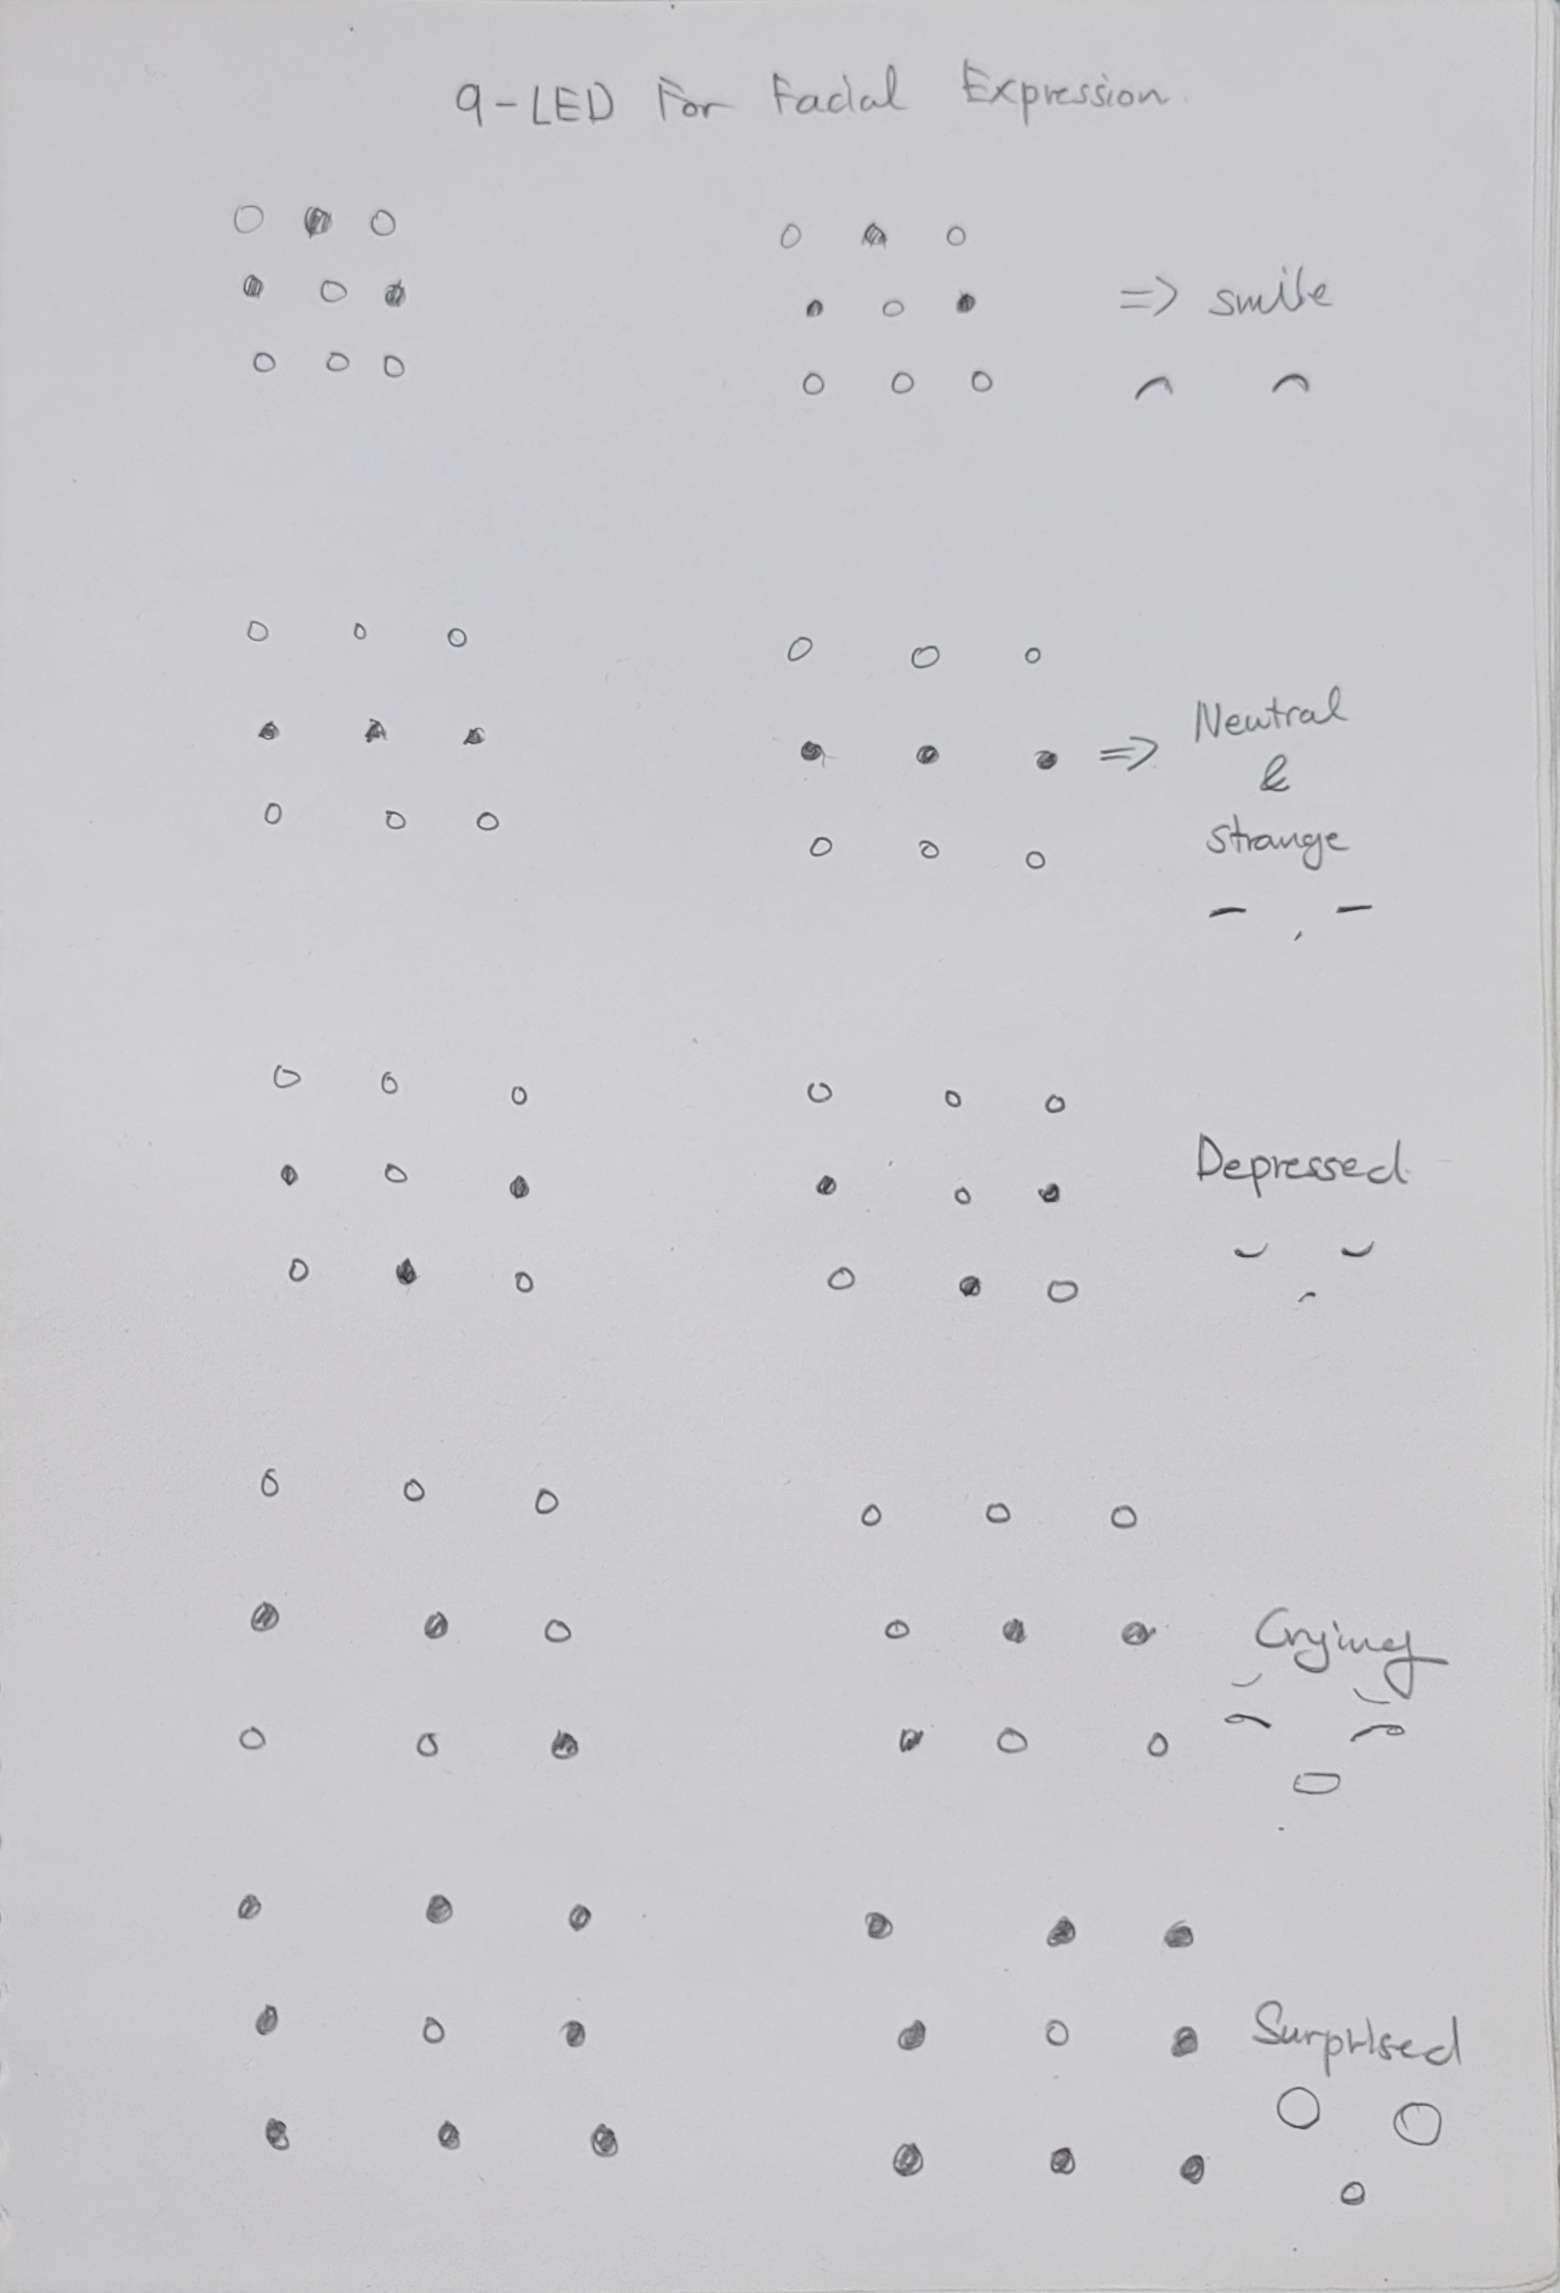 9-LED For Facial Expression
=> smile
=> Neutral
&
strange
Depressed
Crying
Surprised